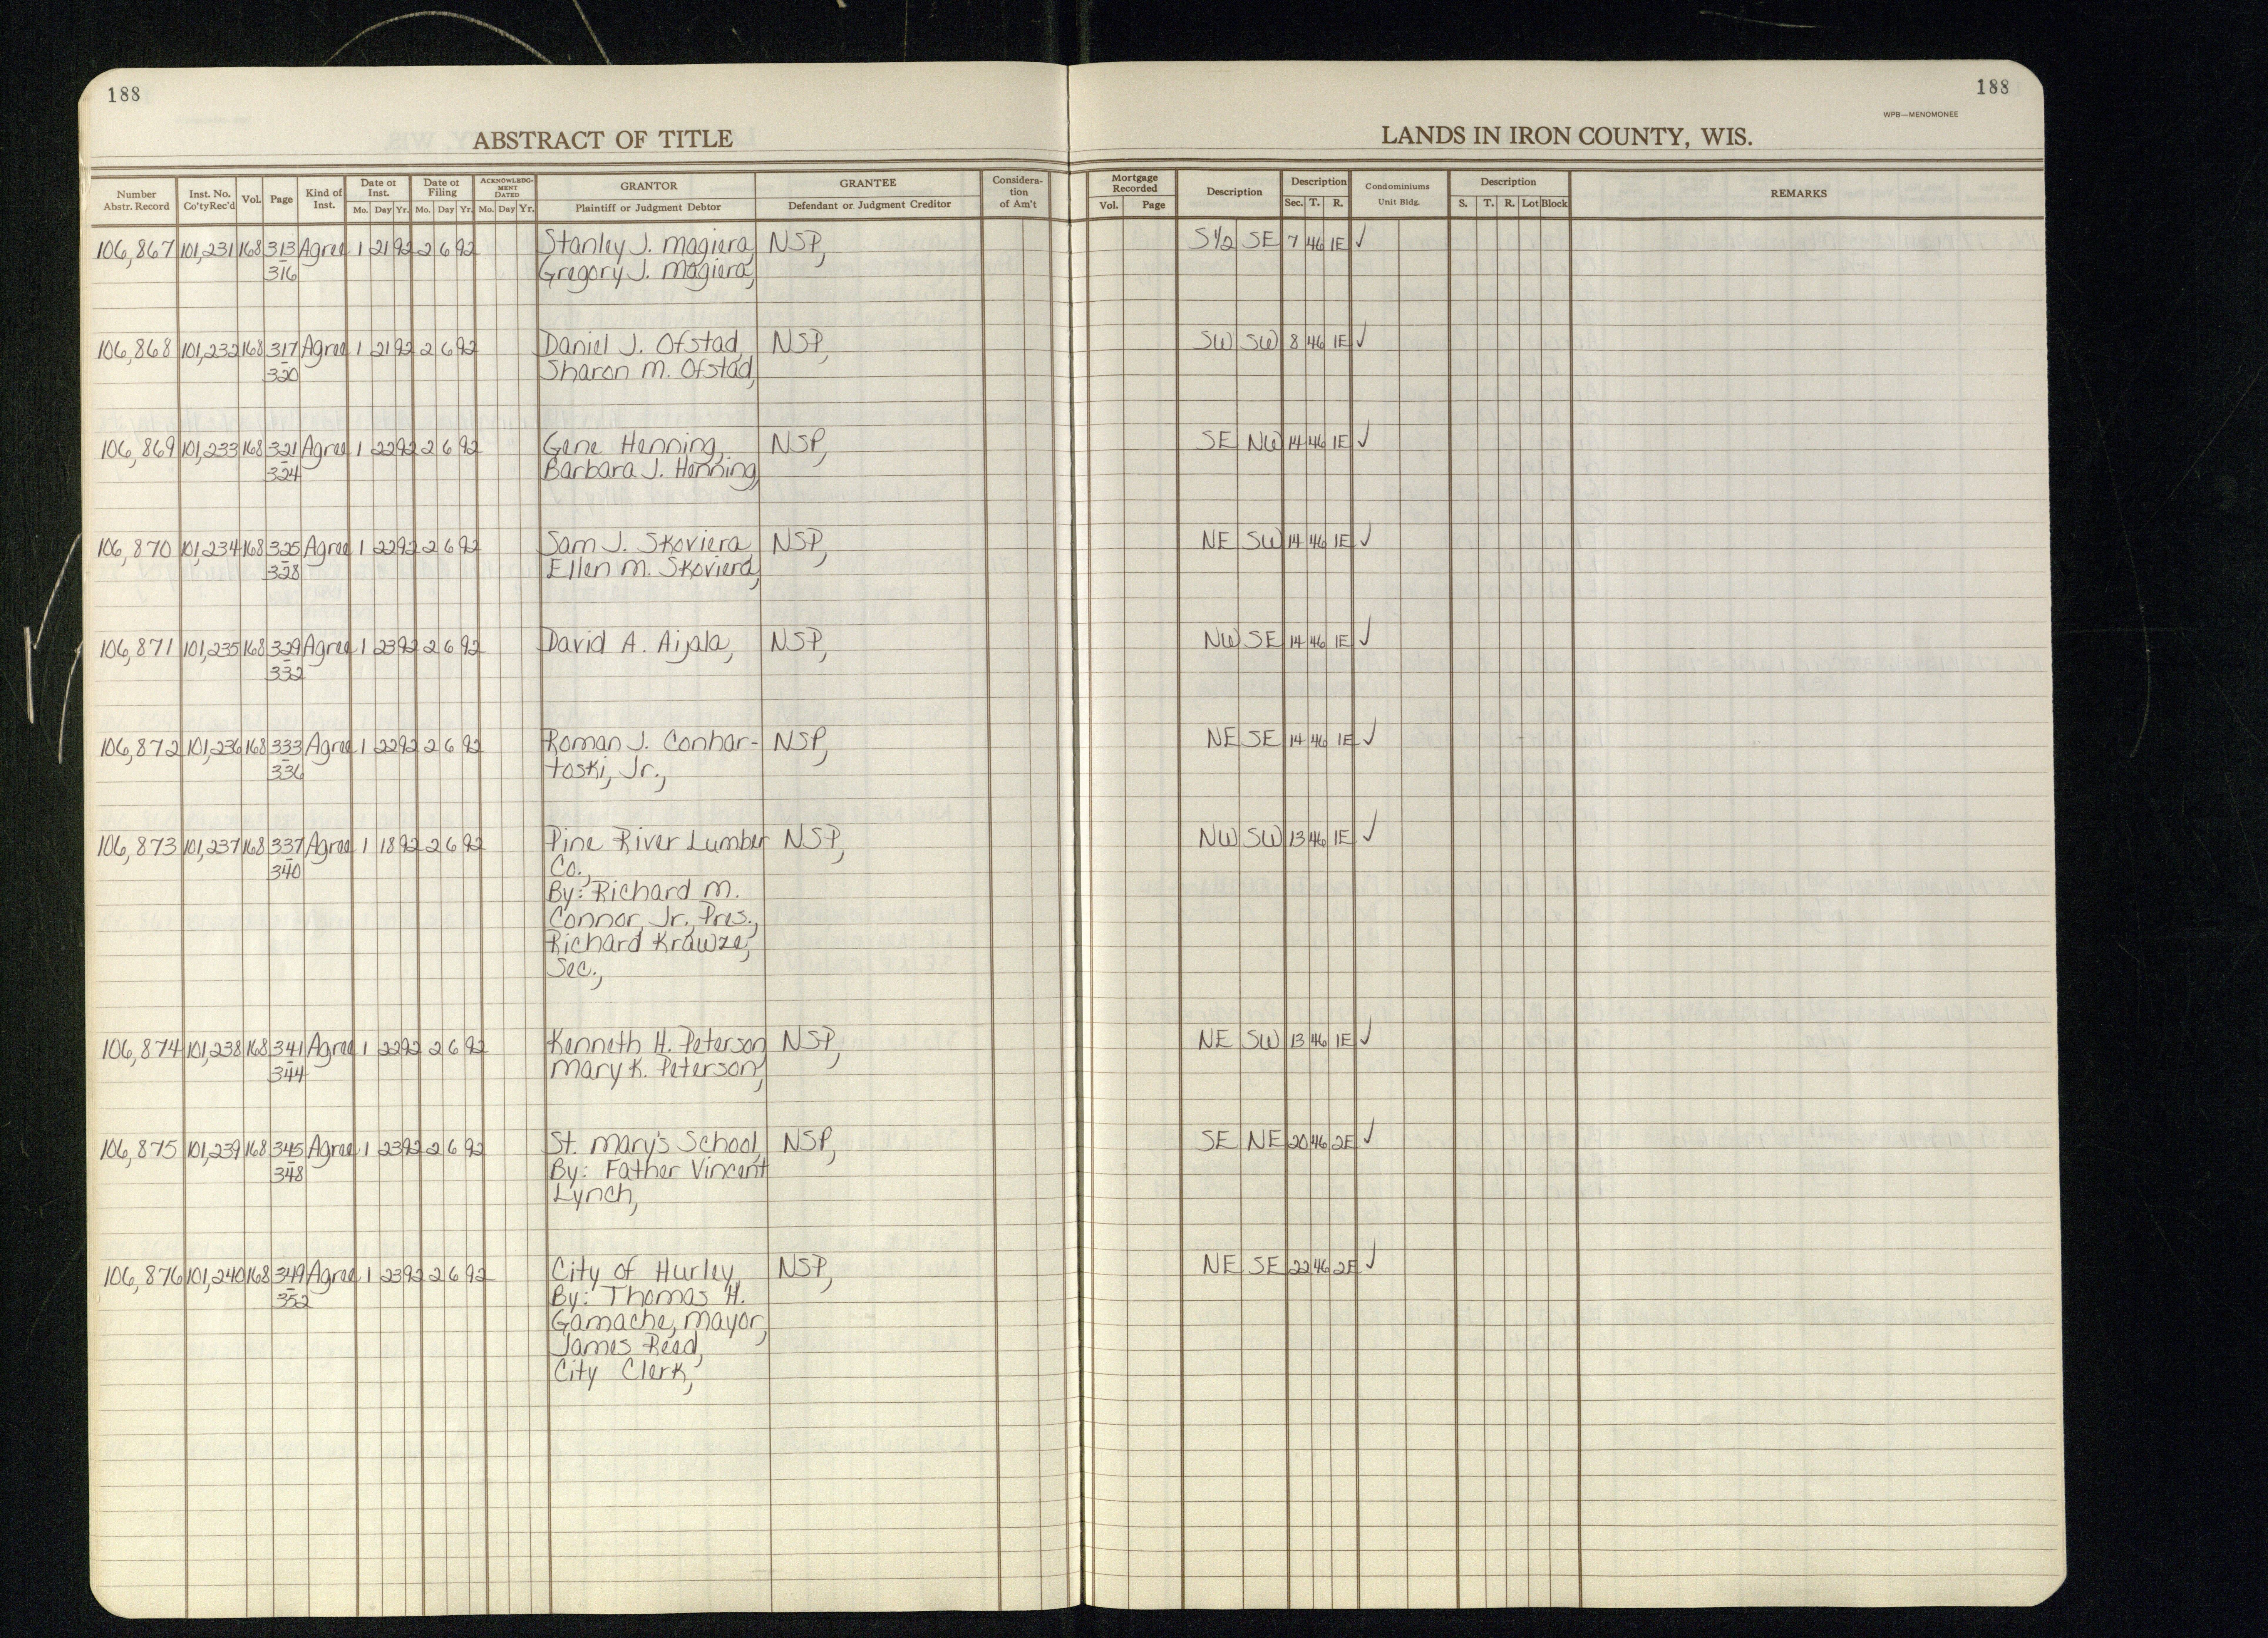 188
188
WPB—MENOMONEE
ABSTRACT OF TITLE
LANDS IN IRON COUNTY, WIS.
Number Abstr. Record | Inst. No. Co'ty Rec'd | Vol. | Page | Kind of Inst. | Date of Inst. Mo. Day Yr. | Date of Filing Mo. Day Yr. | ACKNOWLEDGMENT DATED Mo. Day Yr. | GRANTOR Plaintiff or Judgment Debtor | GRANTEE Defendant or Judgment Creditor | Consideration of Am't | Mortgage Recorded Vol. Page | Description | Description Sec. T. R. | Condominiums Unit Bldg. | Description S. T. R. Lot Block | REMARKS
106,867 101,231 168 313 Agree 1 21 92 2 6 92 Stanley J. Magiera, NSP, S½ SE 7 46 1E ✓
- 316 Gregory J. Magiera,
106,868 101,232 168 317 Agree 1 21 92 2 6 92 Daniel J. Ofstad, NSP, SW SW 8 46 1E ✓
- 320 Sharon M. Ofstad,
106,869 101,233 168 321 Agree 1 22 92 2 6 92 Gene Henning, NSP, SE NW 14 46 1E ✓
- 324 Barbara J. Henning,
106,870 101,234 168 325 Agree 1 22 92 2 6 92 Sam J. Skoviera, NSP, NE SW 14 46 1E ✓
- 328 Ellen M. Skoviera,
106,871 101,235 168 329 Agree 1 23 92 2 6 92 David A. Aijala, NSP, NW SE 14 46 1E ✓
- 332
106,872 101,236 168 333 Agree 1 22 92 2 6 92 Roman J. Conhar- NSP, NE SE 14 46 1E ✓
- 336 toski, Jr.,
106,873 101,237 168 337 Agree 1 18 92 2 6 92 Pine River Lumber NSP, NW SW 13 46 1E ✓
- 340 Co.,
By: Richard M.
Connor, Jr., Pres.,
Richard Krawze,
Sec.,
106,874 101,238 168 341 Agree 1 22 92 2 6 92 Kenneth H. Peterson, NSP, NE SW 13 46 1E ✓
- 344 Mary K. Peterson,
106,875 101,239 168 345 Agree 1 23 92 2 6 92 St. Mary's School, NSP, SE NE 20 46 2E ✓
- 348 By: Father Vincent
Lynch,
106,876 101,240 168 349 Agree 1 23 92 2 6 92 City of Hurley, NSP, NE SE 22 46 2E ✓
- 352 By: Thomas H.
Gamache, Mayor,
James Reed,
City Clerk,